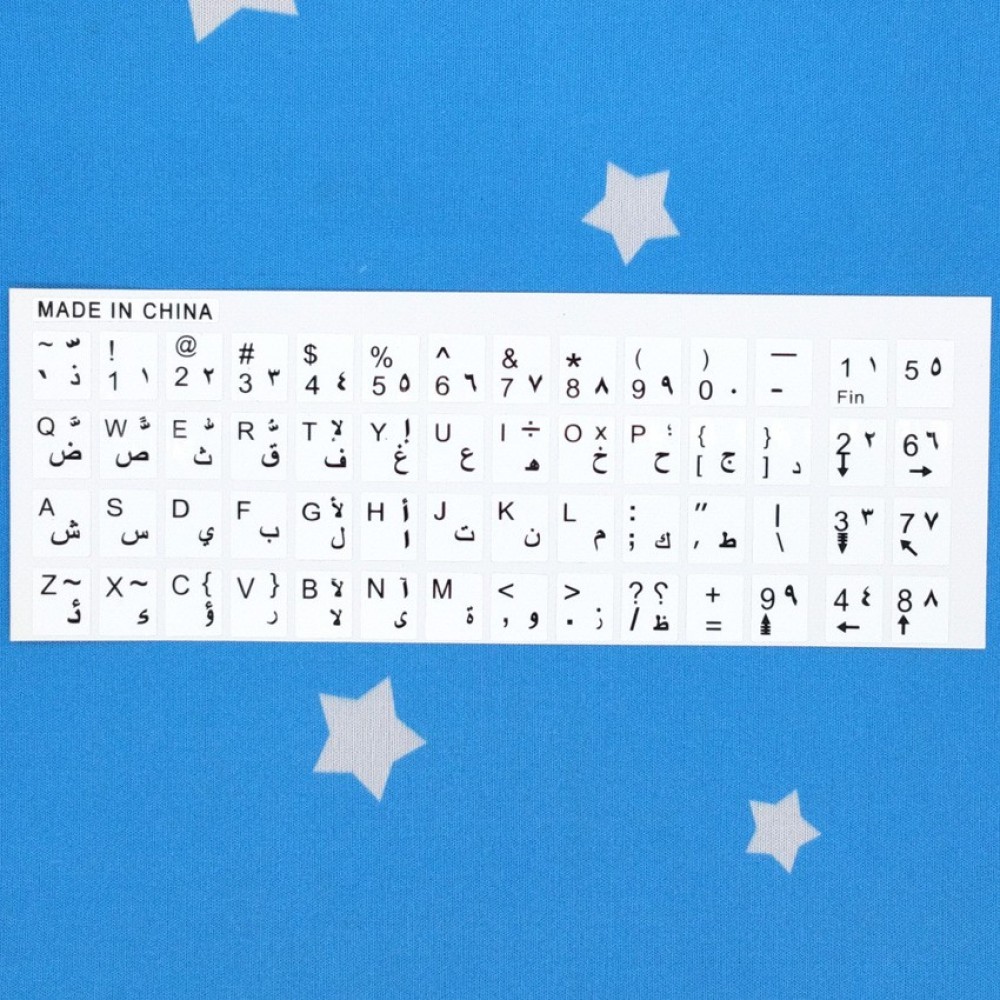 MADE IN CHINA
~ ّ ! @ # $ % ^ & * ( ) — 1 ١ 5 ٥
ذ 1 ١ 2 ٢ 3 ٣ 4 ٤ 5 ٥ 6 ٦ 7 ٧ 8 ٨ 9 ٩ 0 ٠ - Fin
Q َ W ً E ُ R ٌ T لإ Y إ U I ÷ O x P ؛ { } 2 ٢ 6 ٦
ض ص ث ق ف غ ع ه خ ح [ ج ] د ↓ →
A S D F G لأ H أ J K L : " | 3 ٣ 7 ٧
ش س ي ب ل ا ت ن م ; ك ' ط \ ↖
Z ~ X ~ C { V } B لآ N آ M < > ? ؟ + 9 ٩ 4 ٤ 8 ٨
ئ ء ؤ ر لا ى ة , و . ز / ظ = ← ↑